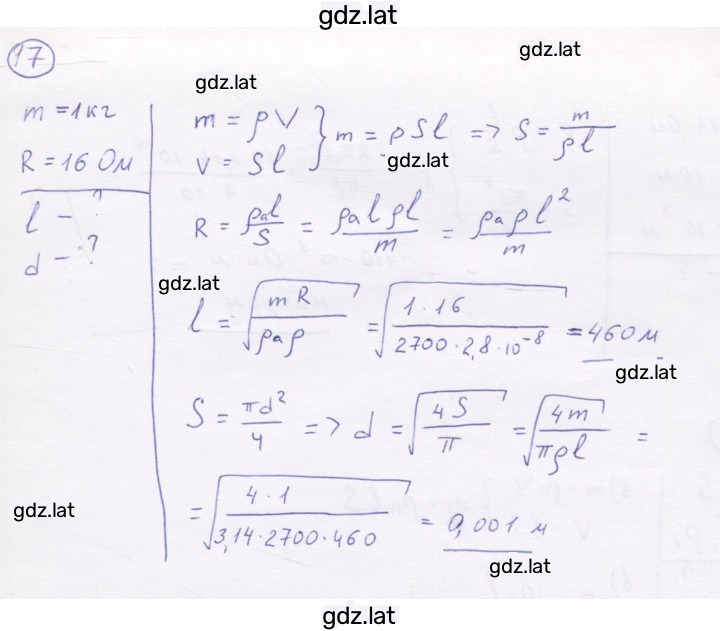 gdz.lat
17
gdz.lat
gdz.lat
m = 1 кг
R = 16 Ом
l - ?
d - ?
m = ρV
V = Sl } m = ρSl => S = m/ρl
gdz.lat
R = ρal/S = ρalρl/m = ρaρl²/m
gdz.lat
l = √(mR/ρaρ) = √(1·16/2700·2,8·10⁻⁸) = 460 м
gdz.lat
S = πd²/4 => d = √(4S/π) = √(4m/πρl) =
= √(4·1/3,14·2700·460) = 0,001 м
gdz.lat
gdz.lat
gdz.lat